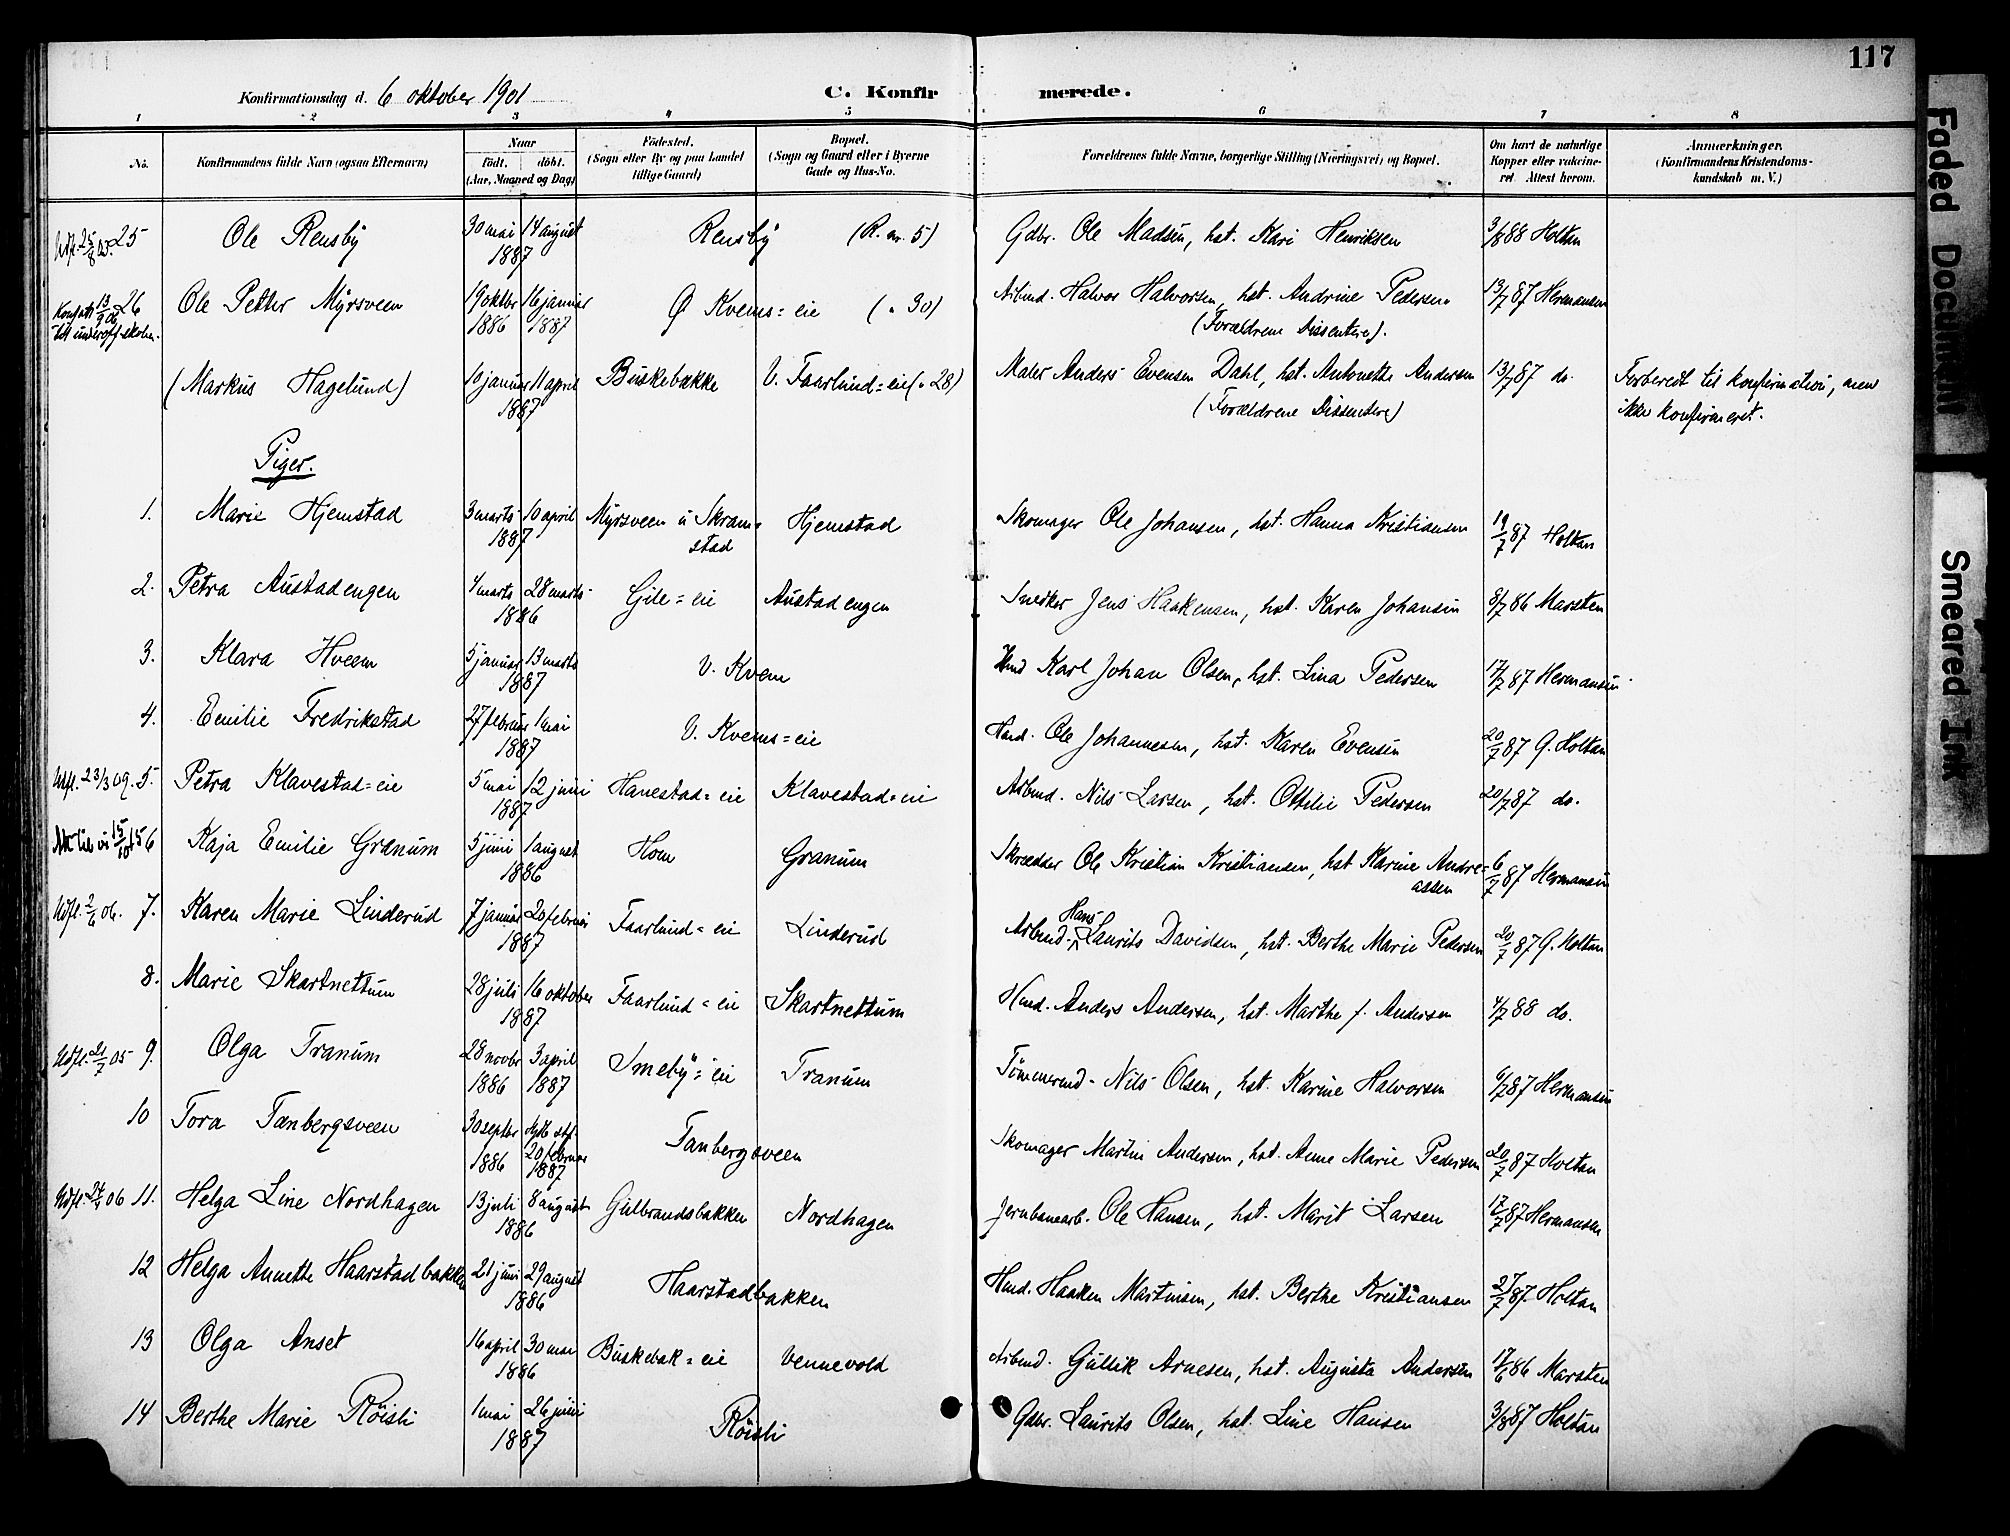 117
Konfirmationsdag d. 6 oktober 1901 C. Konfirmerede.
1 2 3 4 5 6 7 8
No. Konfirmandens fulde Navn (ogsaa Efternavn) Naar född, döbt. (Aar, Maaned og Dag) Födested. (Sogn eller By og paa Landet tillige Gaard) Bopæl. (Sogn og Gaard eller i Byerne Gade og Hus-No. Forældrenes fulde Navne, borgerlige Stilling (Næringsvei) og Bopæl. Om havt de naturlige Kopper eller vaccineret. Attest herom. Anmærkninger. (Konfirmandens Kristendomskundskab m. V.)
25 Ole Rensby 30 mai 14 august 1887 Rensby (R. nr. 5) Gdbr. Ole Madsen, hst. Kari Henriksen 3/8 88 Holtan
26 Ole Petter Myrsveen 19 oktbr 1886 16 januar 1887 Ø Kvems=eie (" 30) Arbmd. Halvor Halvorsen, hst. Andrine Pedersen (Forældrene Dissentere). 13/7 87 Hermansen
(Markus Hagelund) 10 januar 11 april 1887 Buskebække V. Faarlund=eie (" 28) Maler Anders Evensen Dahl, hst. Antonette Andersen (Forældrene Dissentere) 13/7 87 do. Forberedt til konfirmation, men ikke konfirmeret.
Piger.
1. Marie Hjemstad 3 marts 10 april 1887 Myrsveen u Skramstad Hjemstad Skomager Ole Johansen, hst. Hanna Kristiansen 19/7 87 Holtan
2. Petra Austadengen 4 marts 28 marts 1886 Gile=eie Austadengen Snedker Jens Haakensen, hst. Karen Johansen 8/7 86 Marsten
3. Klara Hveem 5 januar 13 marts 1887 V. Kvem Hmd Karl Johan Olsen, hst. Lina Pedersen 17/7 87 Hermansen
4. Emilie Fredrikstad 27 februar 1 mai 1887 V. Kvems=eie Hmd. Ole Johannesen, hst. Karen Evensen 20/7 87 G. Holtan
Udfl. 23/3 09. 5. Petra Klavestad=eie 5 mai 12 juni 1887 Hanestad=eie Klavestad=eie Arbmd. Nils Larsen, hst. Ottilie Pedersen 20/7 87 do.
6 Kaja Emilie Granum 5 juni 1 august 1886 Hom Granum Skrædder Ole Kristian Kristiansen, hst Karine Andreassen 6/7 87 Hermansen
Udfl. 2/6 06. 7. Karen Marie Linderud 7 januar 20 februar 1887 Faarlund=eie Linderud Arbmd. Hans Laurits Davidsen, hst. Berthe Marie Pedersen 20/7 87 G. Holtan
8. Marie Skartnettum 28 juli 16 oktober 1887 Faarlund=eie Skartnettum Hmd. Anders Andersen, hst. Marthe f. Andersen 4/7 88 do.
Udfl. 05 9. Olga Tranum 28 novbr 1886 3 april 1887 Smeby=eie Tranum Tømmermd. Nils Olsen, hst. Karine Halvorsen 6/7 87 Hermansen
10 Tora Tanbergsveen 30 septbr 1886 20 februar 1887 Tanbergsveen Skomager Martin Andersen, hst. Anne Marie Pedersen 20/7 87 Holtan
Udfl. 06 11. Helga Line Nordhagen 13 juli 8 august 1886 Gulbrandsbakken Nordhagen Jernbanearb. Ole Hansen, hst. Marit Larsen 17/7 87 Hermansen
12 Helga Annette Haarstadbakken 21 juni 29 august 1886 Haarstadbakken Hmd. Haaken Martinsen, hst. Berthe Kristiansen 27/7 87. Holtan
13 Olga Anset 16 april 30 mai 1886 Buskebak=eie Vennevold Arbmd. Gullik Arnesen, hst. Augusta Andersen 17/6 86 Marsten
14 Berthe Marie Röisli 1 mai 26 juni 1887 Röisli Gdbr. Laurits Olsen, hst. Line Hansen 3/8 87 Holtan
Faded Document
Smeared Ink